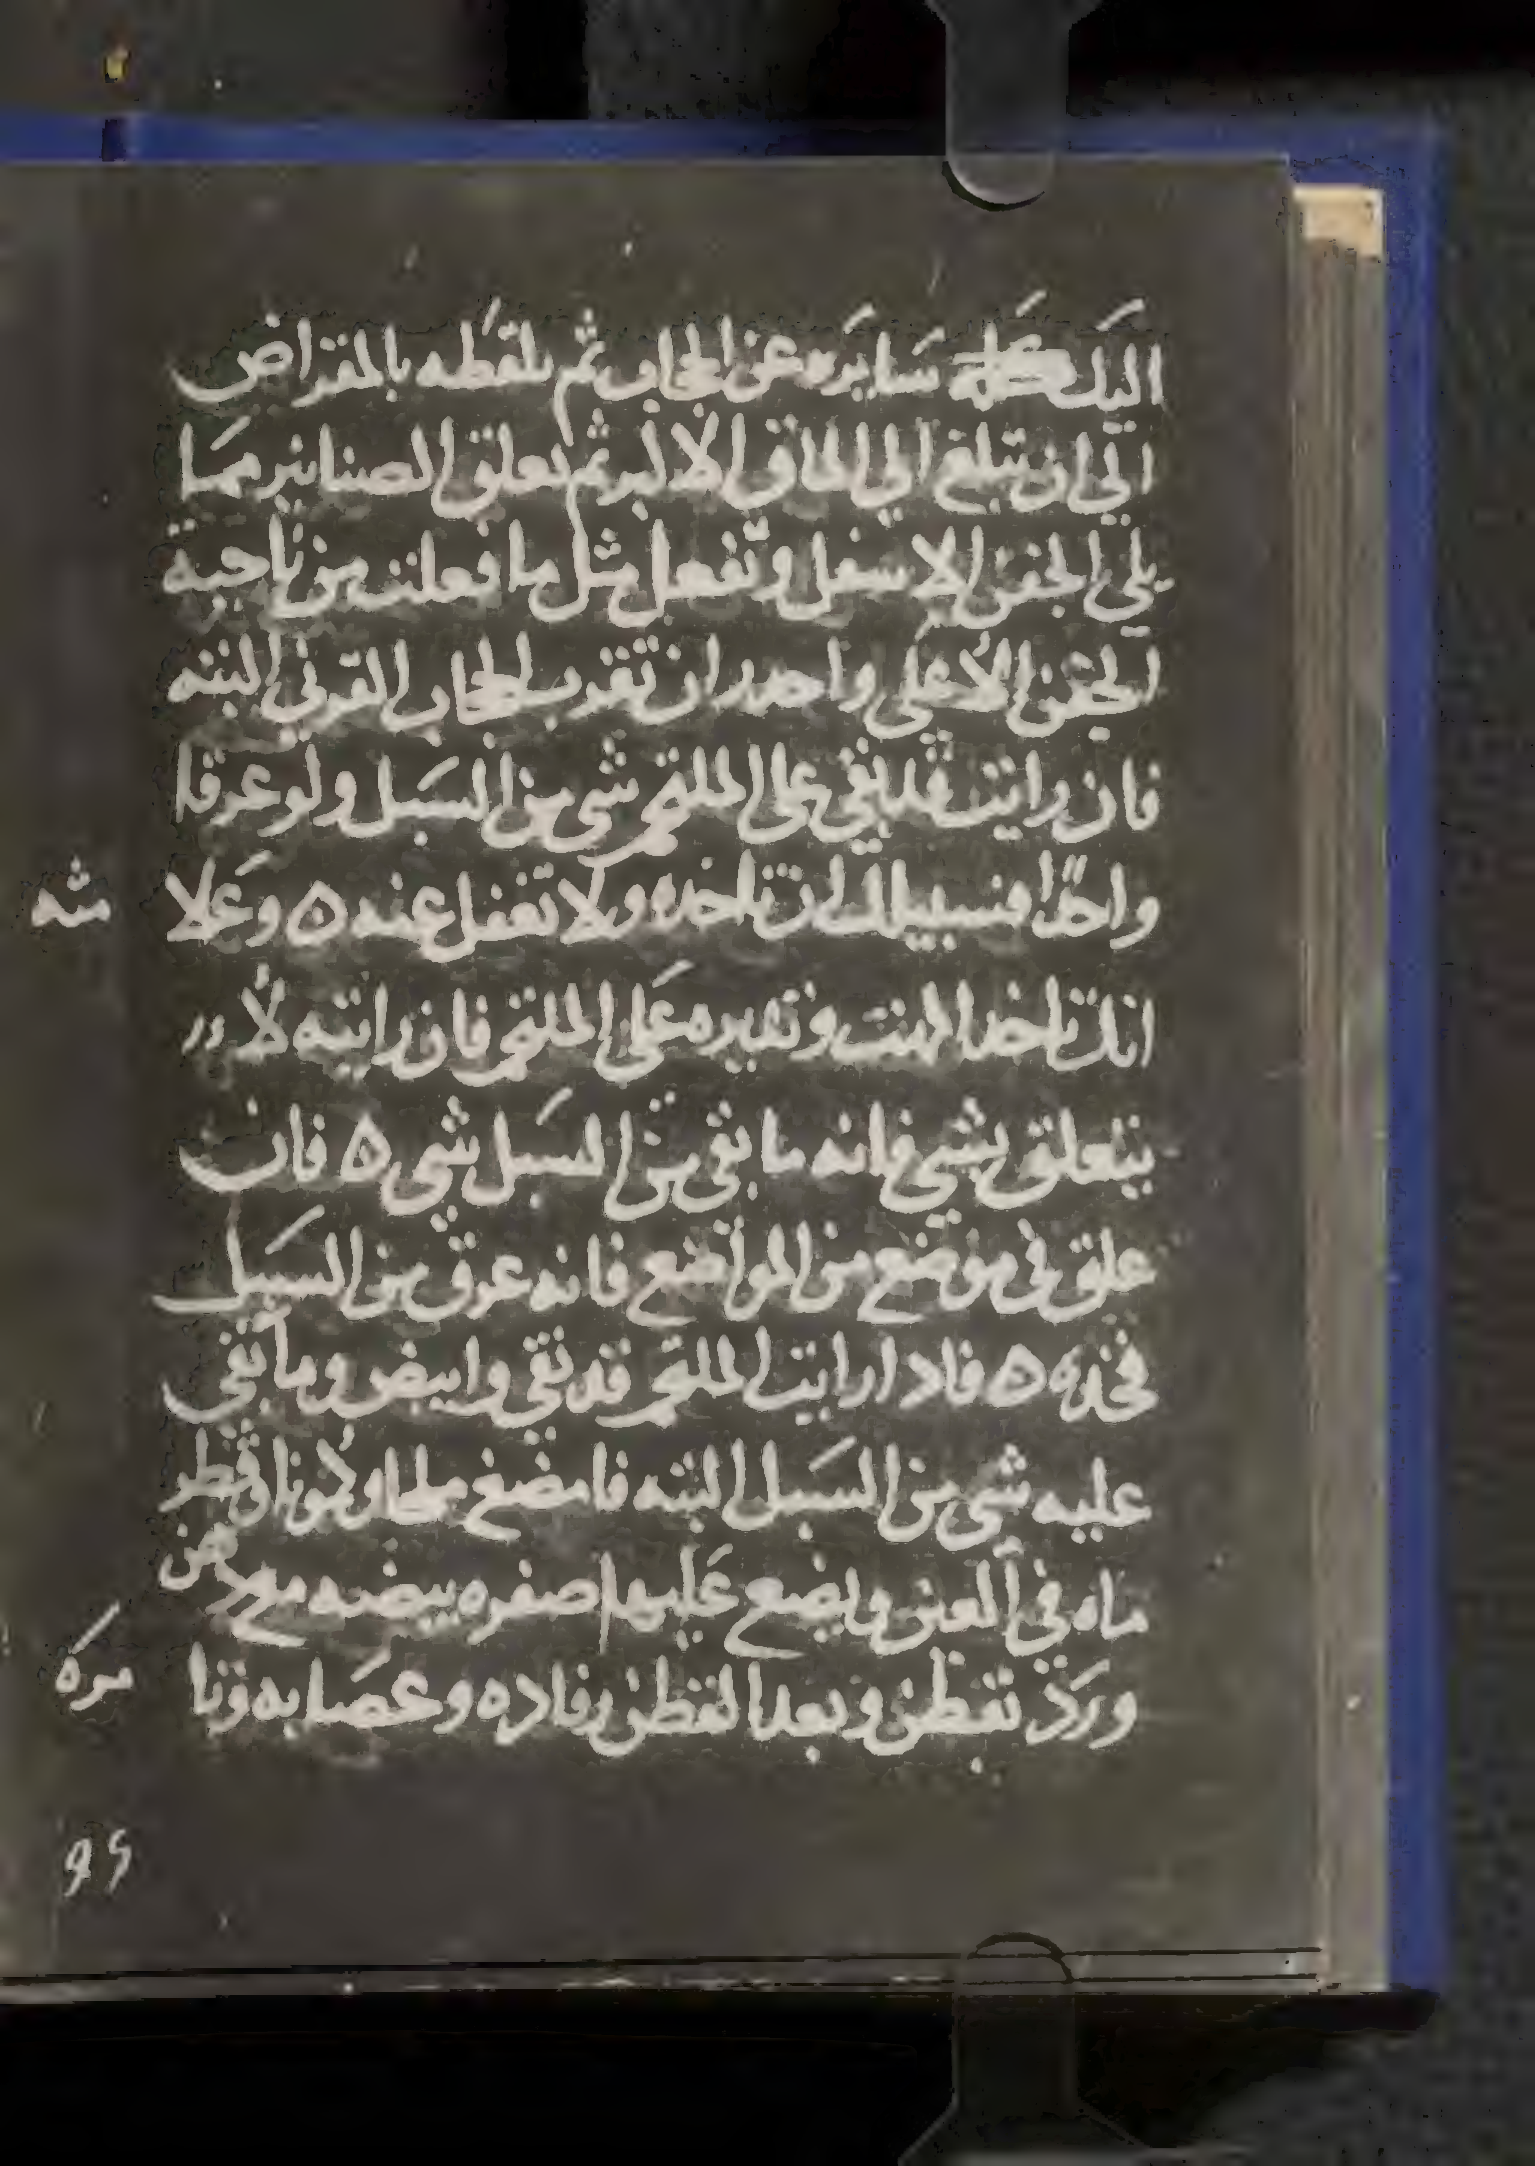 اليك سايره عن الحجاب ثم تلقطه بالمقراض
الي ان تبلغ الي الماق الاكبر ثم تعلق الصنانير مما
يلي الجفن الاسفل وتفعل مثل ما فعلت من ناحية
الجفن الاعلي واحدر ان تقرب الحجاب القرني البته
فان رايت قد بقي علي الملتحم شي من السبل ولو عرقا
واحدًا فسبيلك ان تاخده ولا تغفل عنه ٥ وعلا
مته
انك تاخد المهت وتديره علي الملتحم فان رايته لا
يتعلق بشي فانه ما بقي من السبل شي ٥ فان
علق في موضع من المواضع فانه عرق من السبل
فخده ٥ فادا رايت الملتحم قد نقي وابيض وما بقي
عليه شي من السبل البته فامضغ ملحا وكمونا وقطر
ماه في العين ويضع عليها صفره بيضه مع دهن
ورد بقطن وبعد القطن رفاده وعصابه وتا
مره